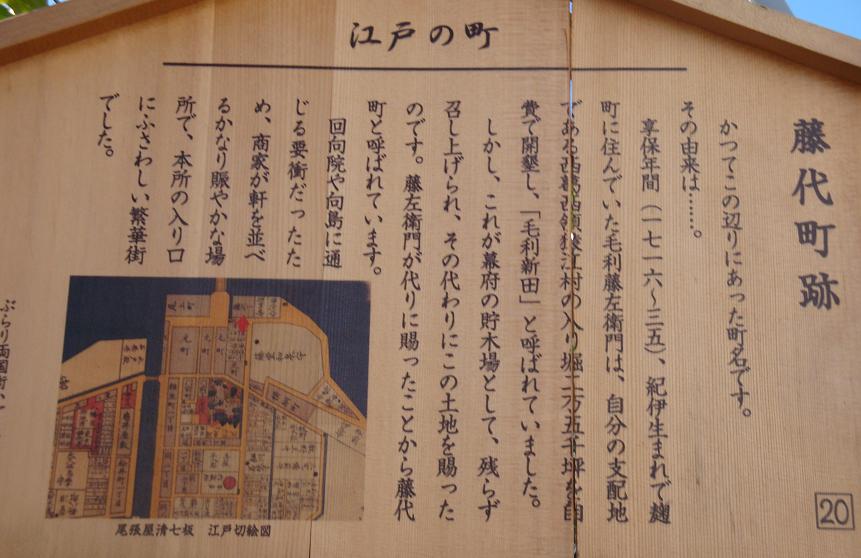 江戸の町
藤代町跡
かつてこの辺りにあった町名です。
その由来は……。
享保年間（一七一六～三五）、紀伊生まれで麹
町に住んでいた毛利藤左衛門は、自分の支配地
である西葛西領猿江村の入り堀二万五千坪を自
費で開墾し、「毛利新田」と呼ばれていました。
しかし、これが幕府の貯木場として、残らず
召し上げられ、その代わりにこの土地を賜った
のです。藤左衛門が代りに賜ったことから藤代
町と呼ばれています。
回向院や向島に通
じる要衝だったた
め、商家が軒を並べ
るかなり賑やかな場
所で、本所の入り口
にふさわしい繁華街
でした。
尾張屋清七板 江戸切絵図
ぶらり両国街
20